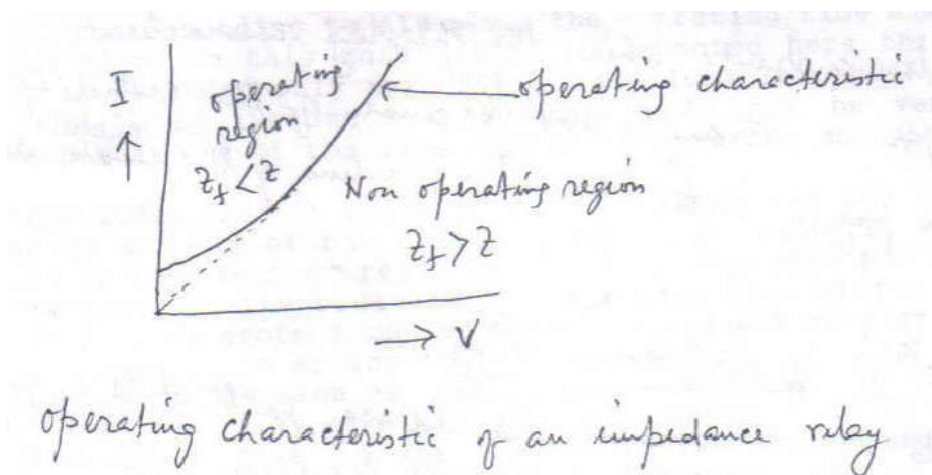 I
operating
region
Z_f < Z
operating characteristic
Non operating region
Z_f > Z
V
operating characteristic of an impedance relay